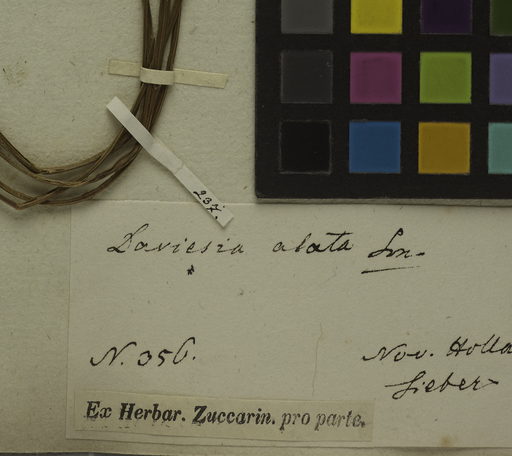 237.
Daviesia alata Sm.
N. 356.
Nov. Holla
Sieber
Ex Herbar. Zuccarin. pro parte.